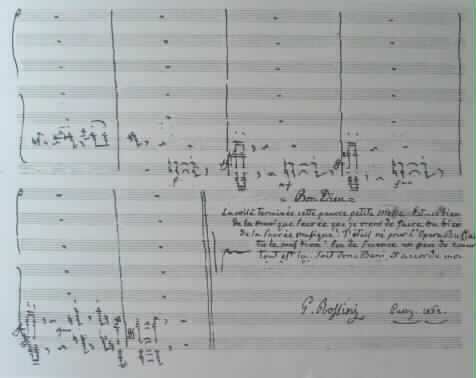 = Bon Dieu =
La voilà terminée cette pauvre petite Messe. Est-ce bien
de la musique sacrée que je viens de faire ou bien
de la sacrée musique? J'étais né pour l'Opera Buffa
tu le sais bien! Peu de science un peu de cœur
tout est là. Sois donc Beni, et accorde moi
G. Rossini
Passy. 1863.